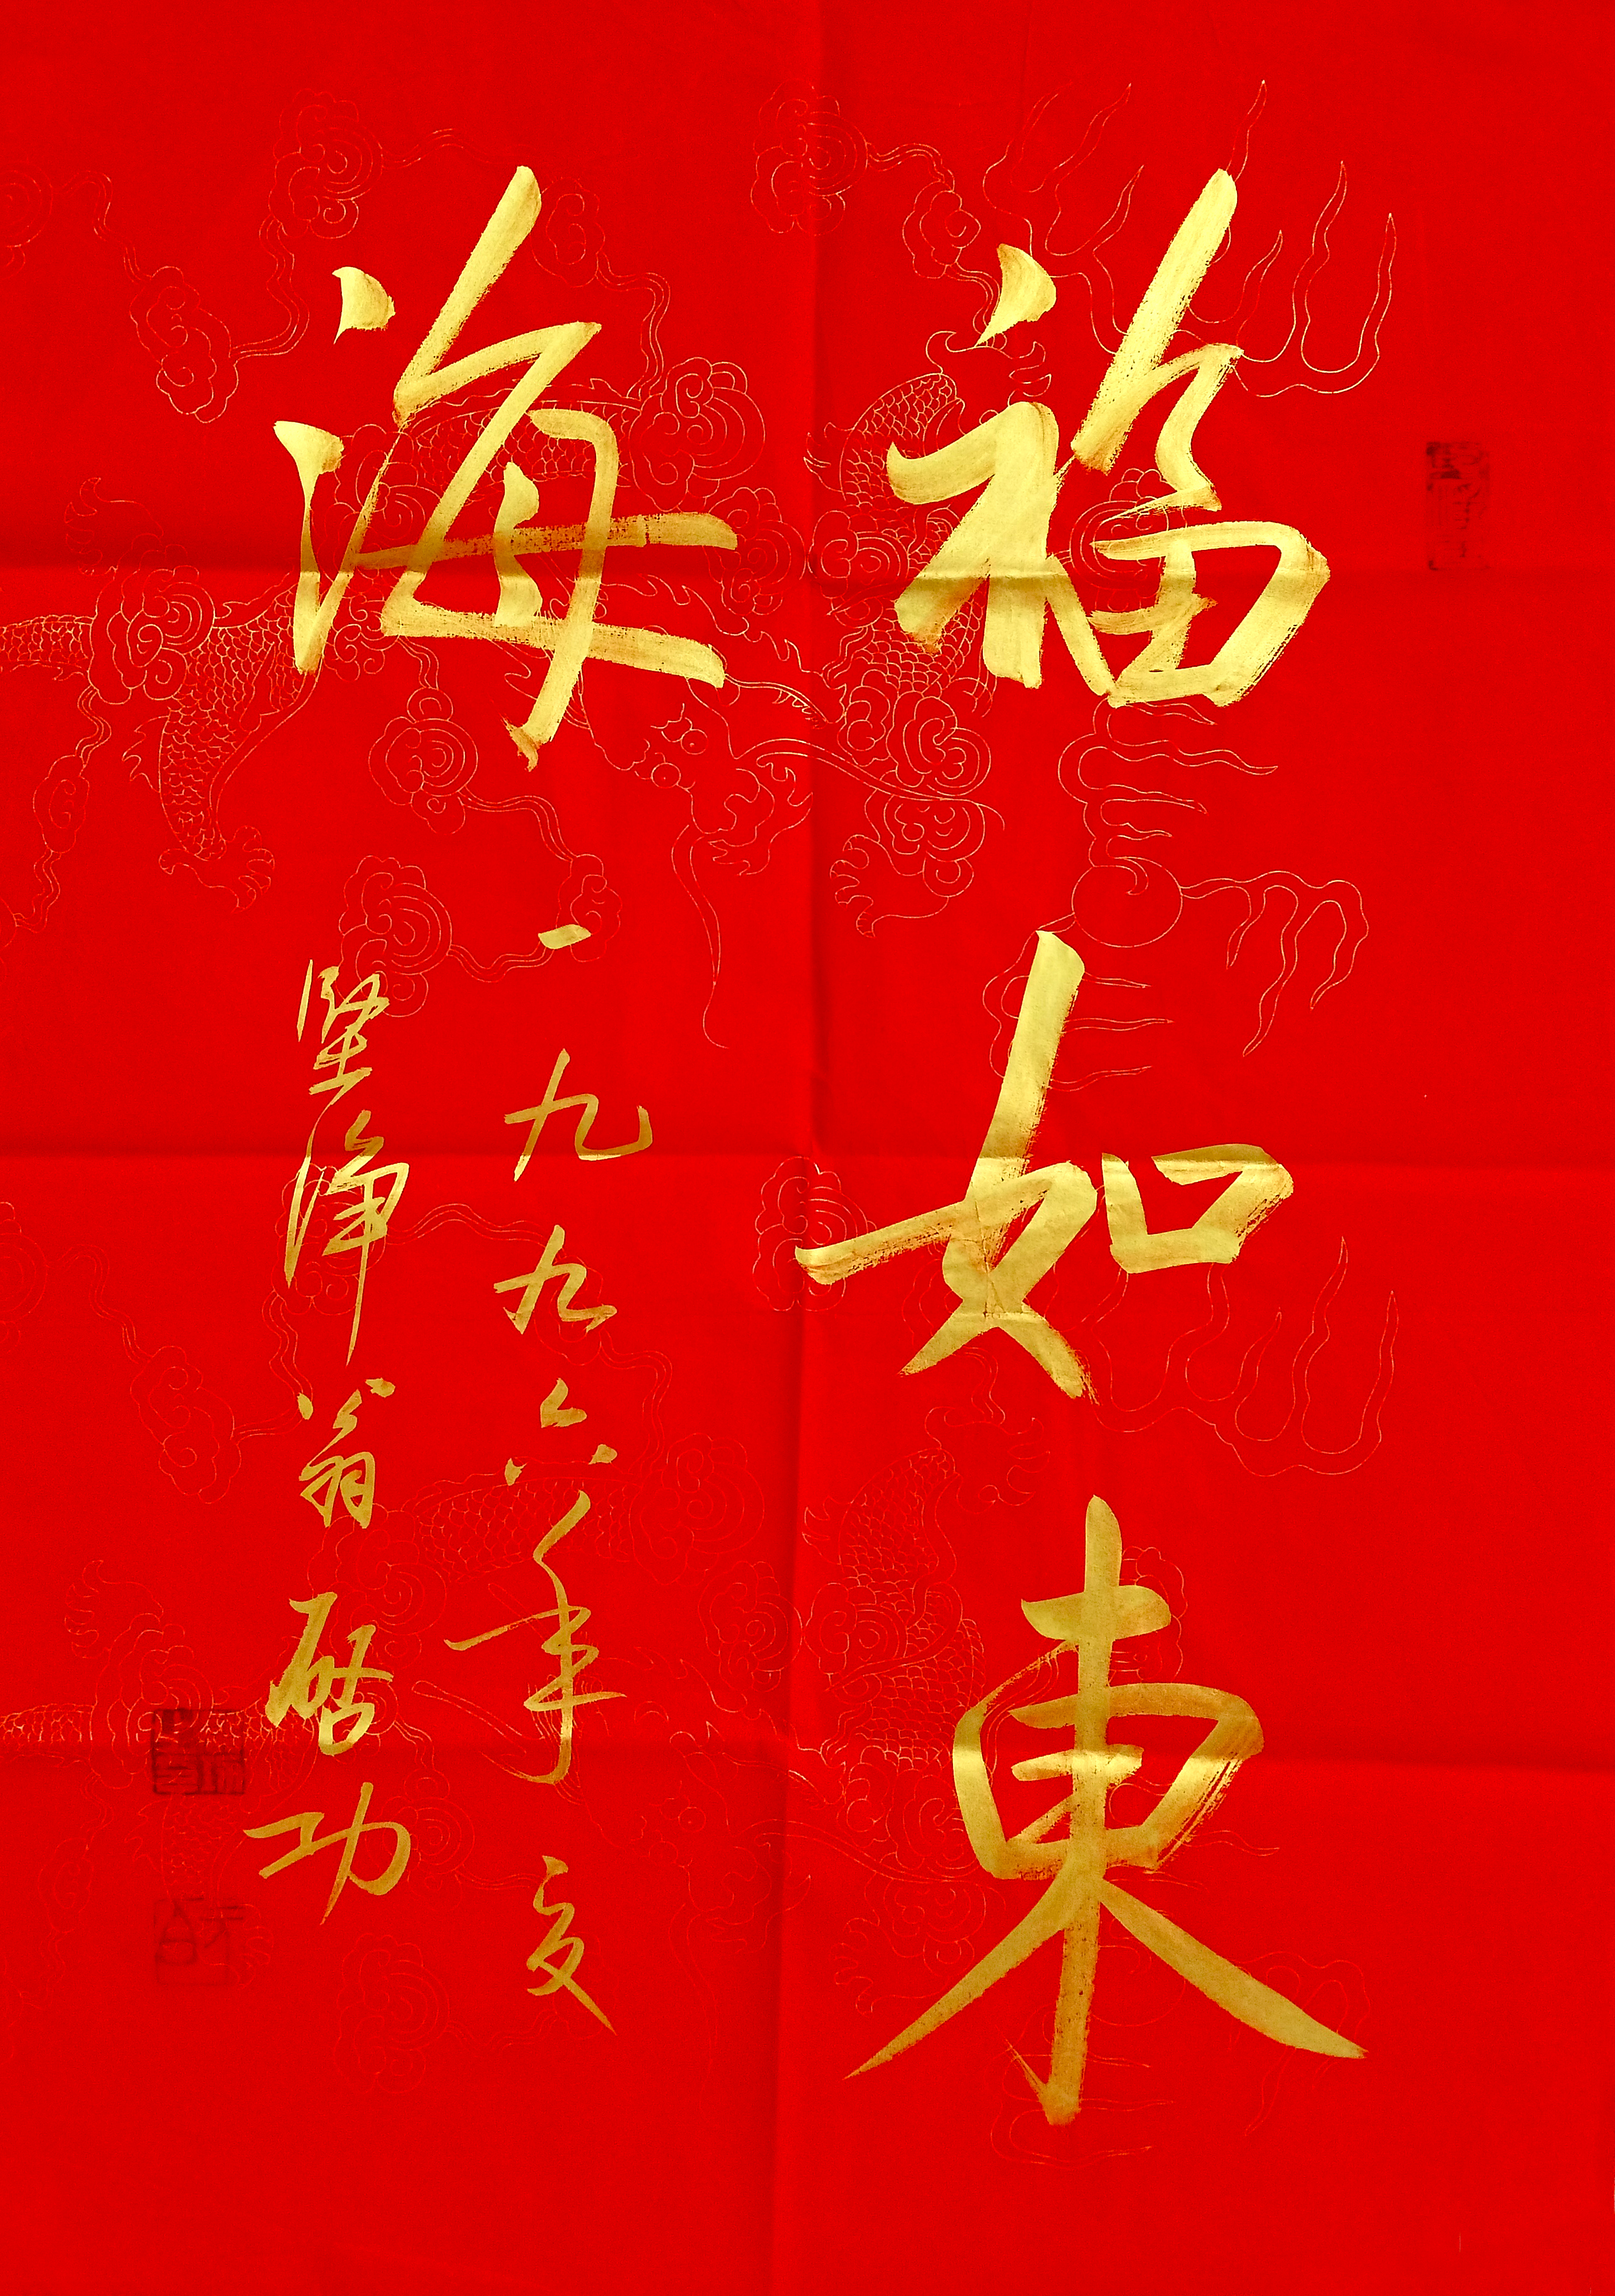 福如東
海
一九九六年夏
堅淨翁啟功